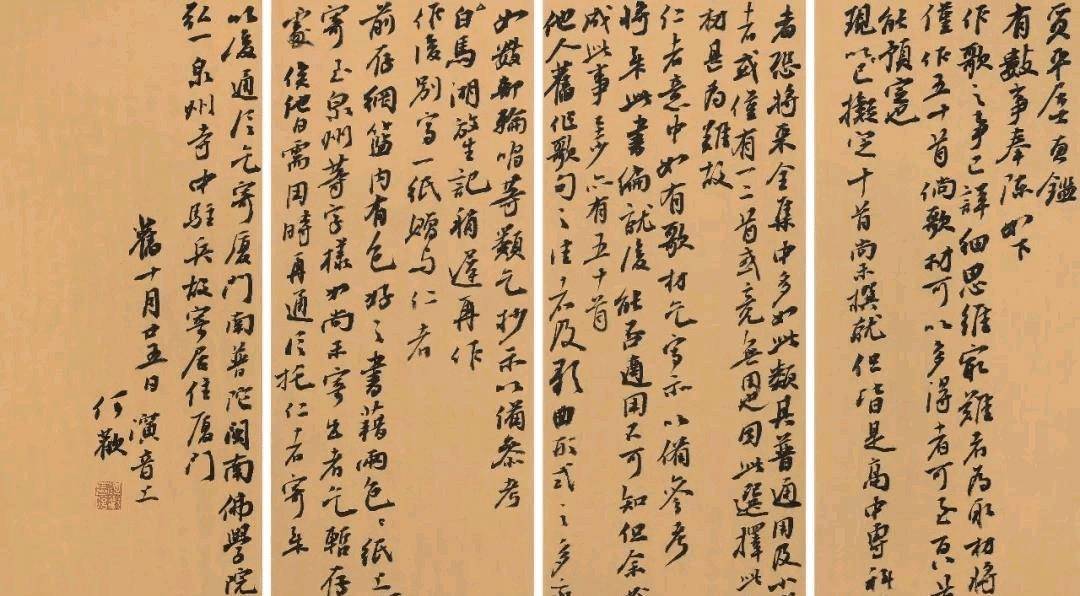 质平居士慧鉴
有数事奉陈如下
作歌之事已詳細思維最難者為取材將
僅作五十首倘歌材可以多得者可至百八首
能預定也
現所已擬定十首尚未撰就但皆是高中專科
者恐將來全集中多如此類其普通用及小學
者或僅有一二首或竟無因此選擇此
材甚為難故
仁者意中如有歌材乞寫示以備參考
將來此書編就後能否適用不可知但余
成此事至少亦有五十首
他人舊作歌句之佳者及歌曲形式之多
如數部輪唱等類乞抄示以備參考
白馬湖放生記稍遲再作
作後別寫一紙贈与仁者
前存網籃內有包好之書藉兩包紙上
寄至泉州等字樣如尚未寄出者乞暫存
處俟他日需用時再通信托仁者寄來
以後通信乞寄廈門南普陀閩南佛學院
弘一泉州寺中駐兵故寄居住廈門
舊十月廿五日 演音上
何歡